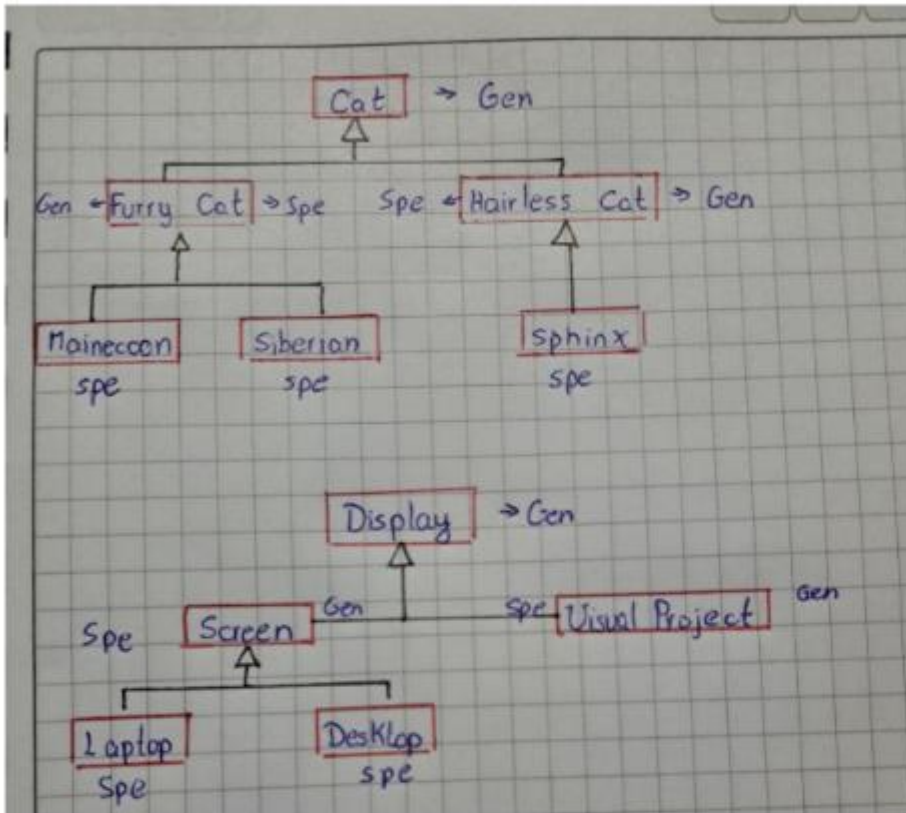 Cat → Gen
Gen ← Furry Cat → Spe Spe ← Hairless Cat → Gen
Mainecoon Siberian Sphinx
spe spe spe
Display → Gen
Spe Screen Gen Spe Visual Project Gen
Laptop Desktop
Spe spe